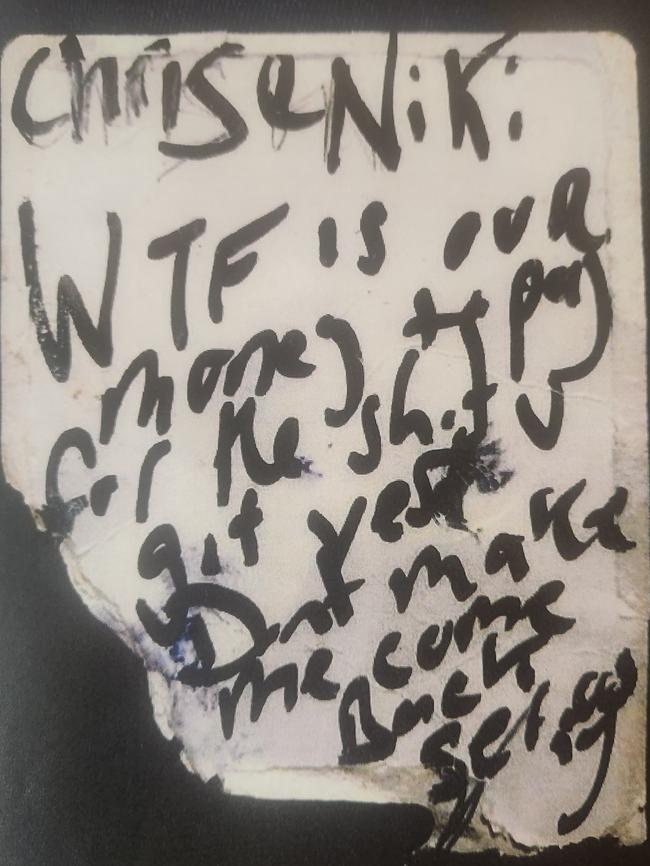 chriS e NiKi
WTF is our
money to pay
for the shit U
git yest
Dont make
me come
Back